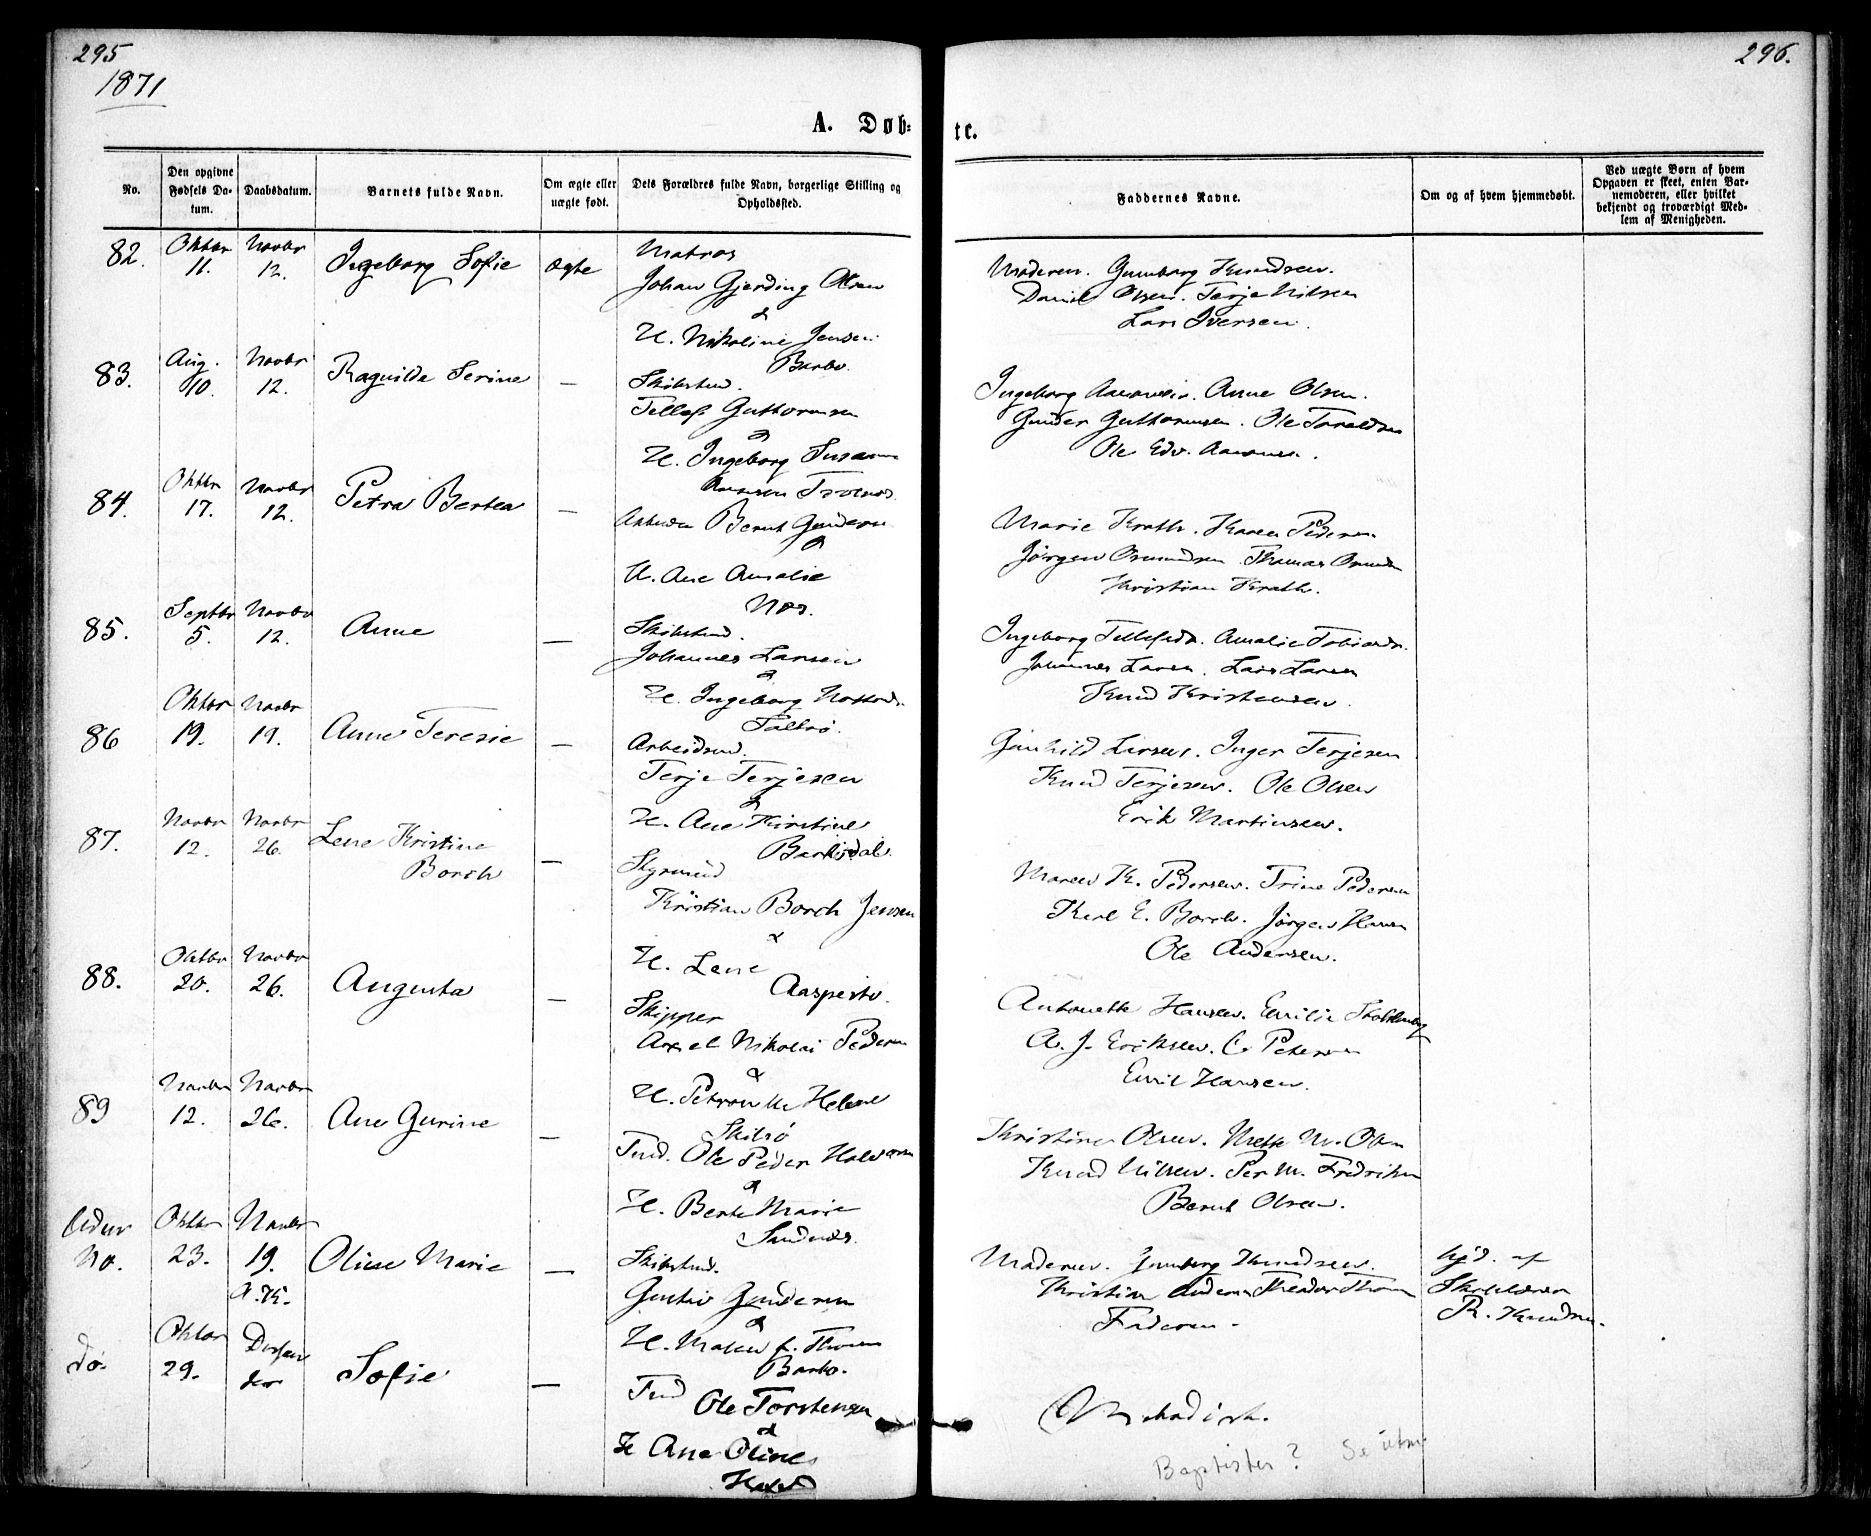 295
1871
296.
A. Døb-
te.
No.
Den opgivne Fødsels Da-tum.
Daabsdatum.
Barnets fulde Navn.
Om ægte eller uægte født.
Dets Forældres fulde Navn, borgerlige Stilling og Opholdssted.
Faddernes Navne.
Om og af hvem hjemmedøbt.
Ved uægte Børn af hvem Opgaven er skeet, enten Bar-nemoderen, eller hvilket bekjendt og troværdigt Med-lem af Menigheden.
82. Oktbr 11. Novbr 12. Ingeborg Sofie ægte
Matros
Johan Gjerding Olsen
&
H. Nikoline Jensen
Barbo.
Moderen. Gunborg Knudsen.
Daniel Olsen. Terje Nilsen
Lars Iversen.
83. Aug. 10. Novbr 12. Ragnilde Serine —
Skibstmd.
Tellef Guttormsen
&
H. Ingeborg Susanne
Ingeborg Aanonsen. Anne Olsen.
Gunder Guttormsen. Ole Taraldsen
Ole Edv. Aanonsen.
84. Oktbr 17. Novbr 12. Petra Bertea —
Bernt Gundersen
&
H. Ane Amalie
Næs.
Marie Krath. Karen Pedersen
Jørgen Osmundsen. Thomas Osmundsen
Kristian Krath.
85. Septbr 5. Novbr 12. Anne —
Skibstmd.
Johannes Larsen
&
H. Ingeborg
Ingeborg Tellefsdr. Amalie Tobiasdr.
Johannes Larsen. Lars Larsen
Knud Kristensen.
86 Oktbr 19. Novbr 19. Anne Teresie —
Arbeidsmd.
Terje Terjesen
&
H. Ane Kirstine
Gunhild Larsen. Inger Terjesen
Knud Terjesen. Ole Olsen
Erik Martinsen.
87. Novbr 12. Novbr 26. Lene Kristine
Borch —
Styrmand
Kristian Borch Jensen
&
H. Lene
Maren K. Pedersen. Trine Pedersen
Karl E. Borch. Jørgen Hansen
Ole Andersen.
88. Oktbr 20. Novbr 26. Augusta —
Skipper
Axel Nikolai Pedersen
&
H. Petronille Helene
Skilsø
Antonette Hansen. Emilie Stoltenberg
A. J. Eriksen. C. Petersen
Emil Hansen.
89 Novbr 12. Novbr 26. Ane Gurine —
Tmd. Ole Peder Halvorsen
&
H. Berte Marie
Sandnæs.
Kristine Olsen. Mette M. Olsen
Knud Nilsen. Per M. Fredriksen
Bernt Olsen.
Uden No. Oktbr 23. Novbr 19. A.K. Oline Marie —
Skibstmd.
Gustav Gundersen
&
H. Thorsen
Barbo.
Moderen. Gunborg Knudsen.
Kristian Andersen
Faderen.
hjd. af
Skolelærer
R. Knudsen.
do. Oktbr 29. Sofie —
Tmd
Ole Torstensen
&
H. Ane Oline
Methodist.
Baptister?